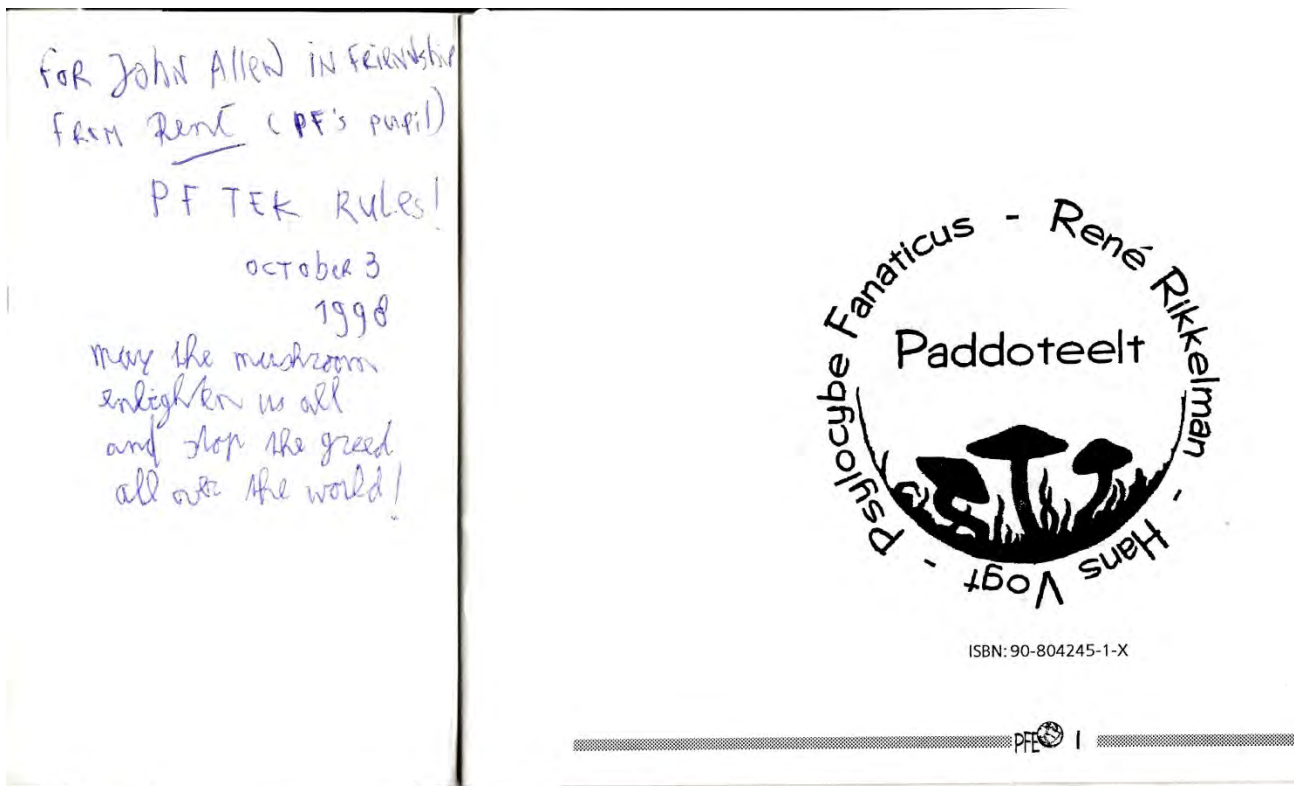 FOR JOHN AllEN IN FRIENDSHIP
FROM René (PF's pupil)
PF TEK RULES!
OCTOBER 3
1998
may the mushroom
enlighten us all
and stop the greed
all over the world!
Psylocybe Fanaticus - René Rikkelman - Hans Vogt -
Paddoteelt
ISBN: 90-804245-1-X
PFE 1